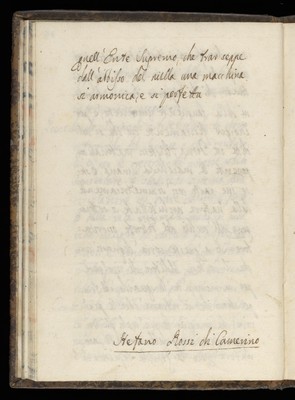 quell'Ente Supremo, che trar seppe
dall'abisso del nulla una macchina
sì armonica, e sì perfetta
Stefano Rossi di Camerino